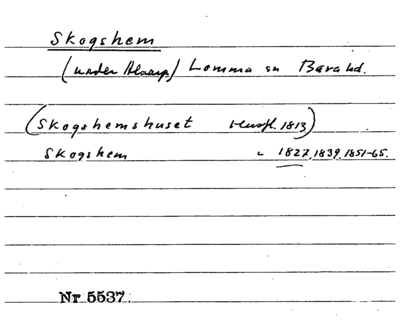 Skogshem
(under Alnarp) Lomma sn Bara hd.
(Skogshemshuset Husfl. 1813)
Skogshem " 1827, 1839, 1851-65.
Nr 5537.